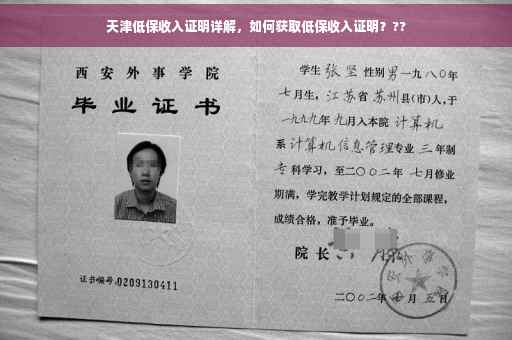 天津低保收入证明详解，如何获取低保收入证明？??
西安外事学院
毕业证书
证书编号:0209130411
学生 张坚 性别 男 一九八〇年
七月生，江苏省 苏州县(市)人，于
一九九九年 九月入本院 计算机
系 计算机信息管理专业 三 年制
专 科学习，至二〇〇二年 七月修业
期满，学完教学计划规定的全部课程，
成绩合格，准予毕业。
院长
二〇〇二年 月 五日